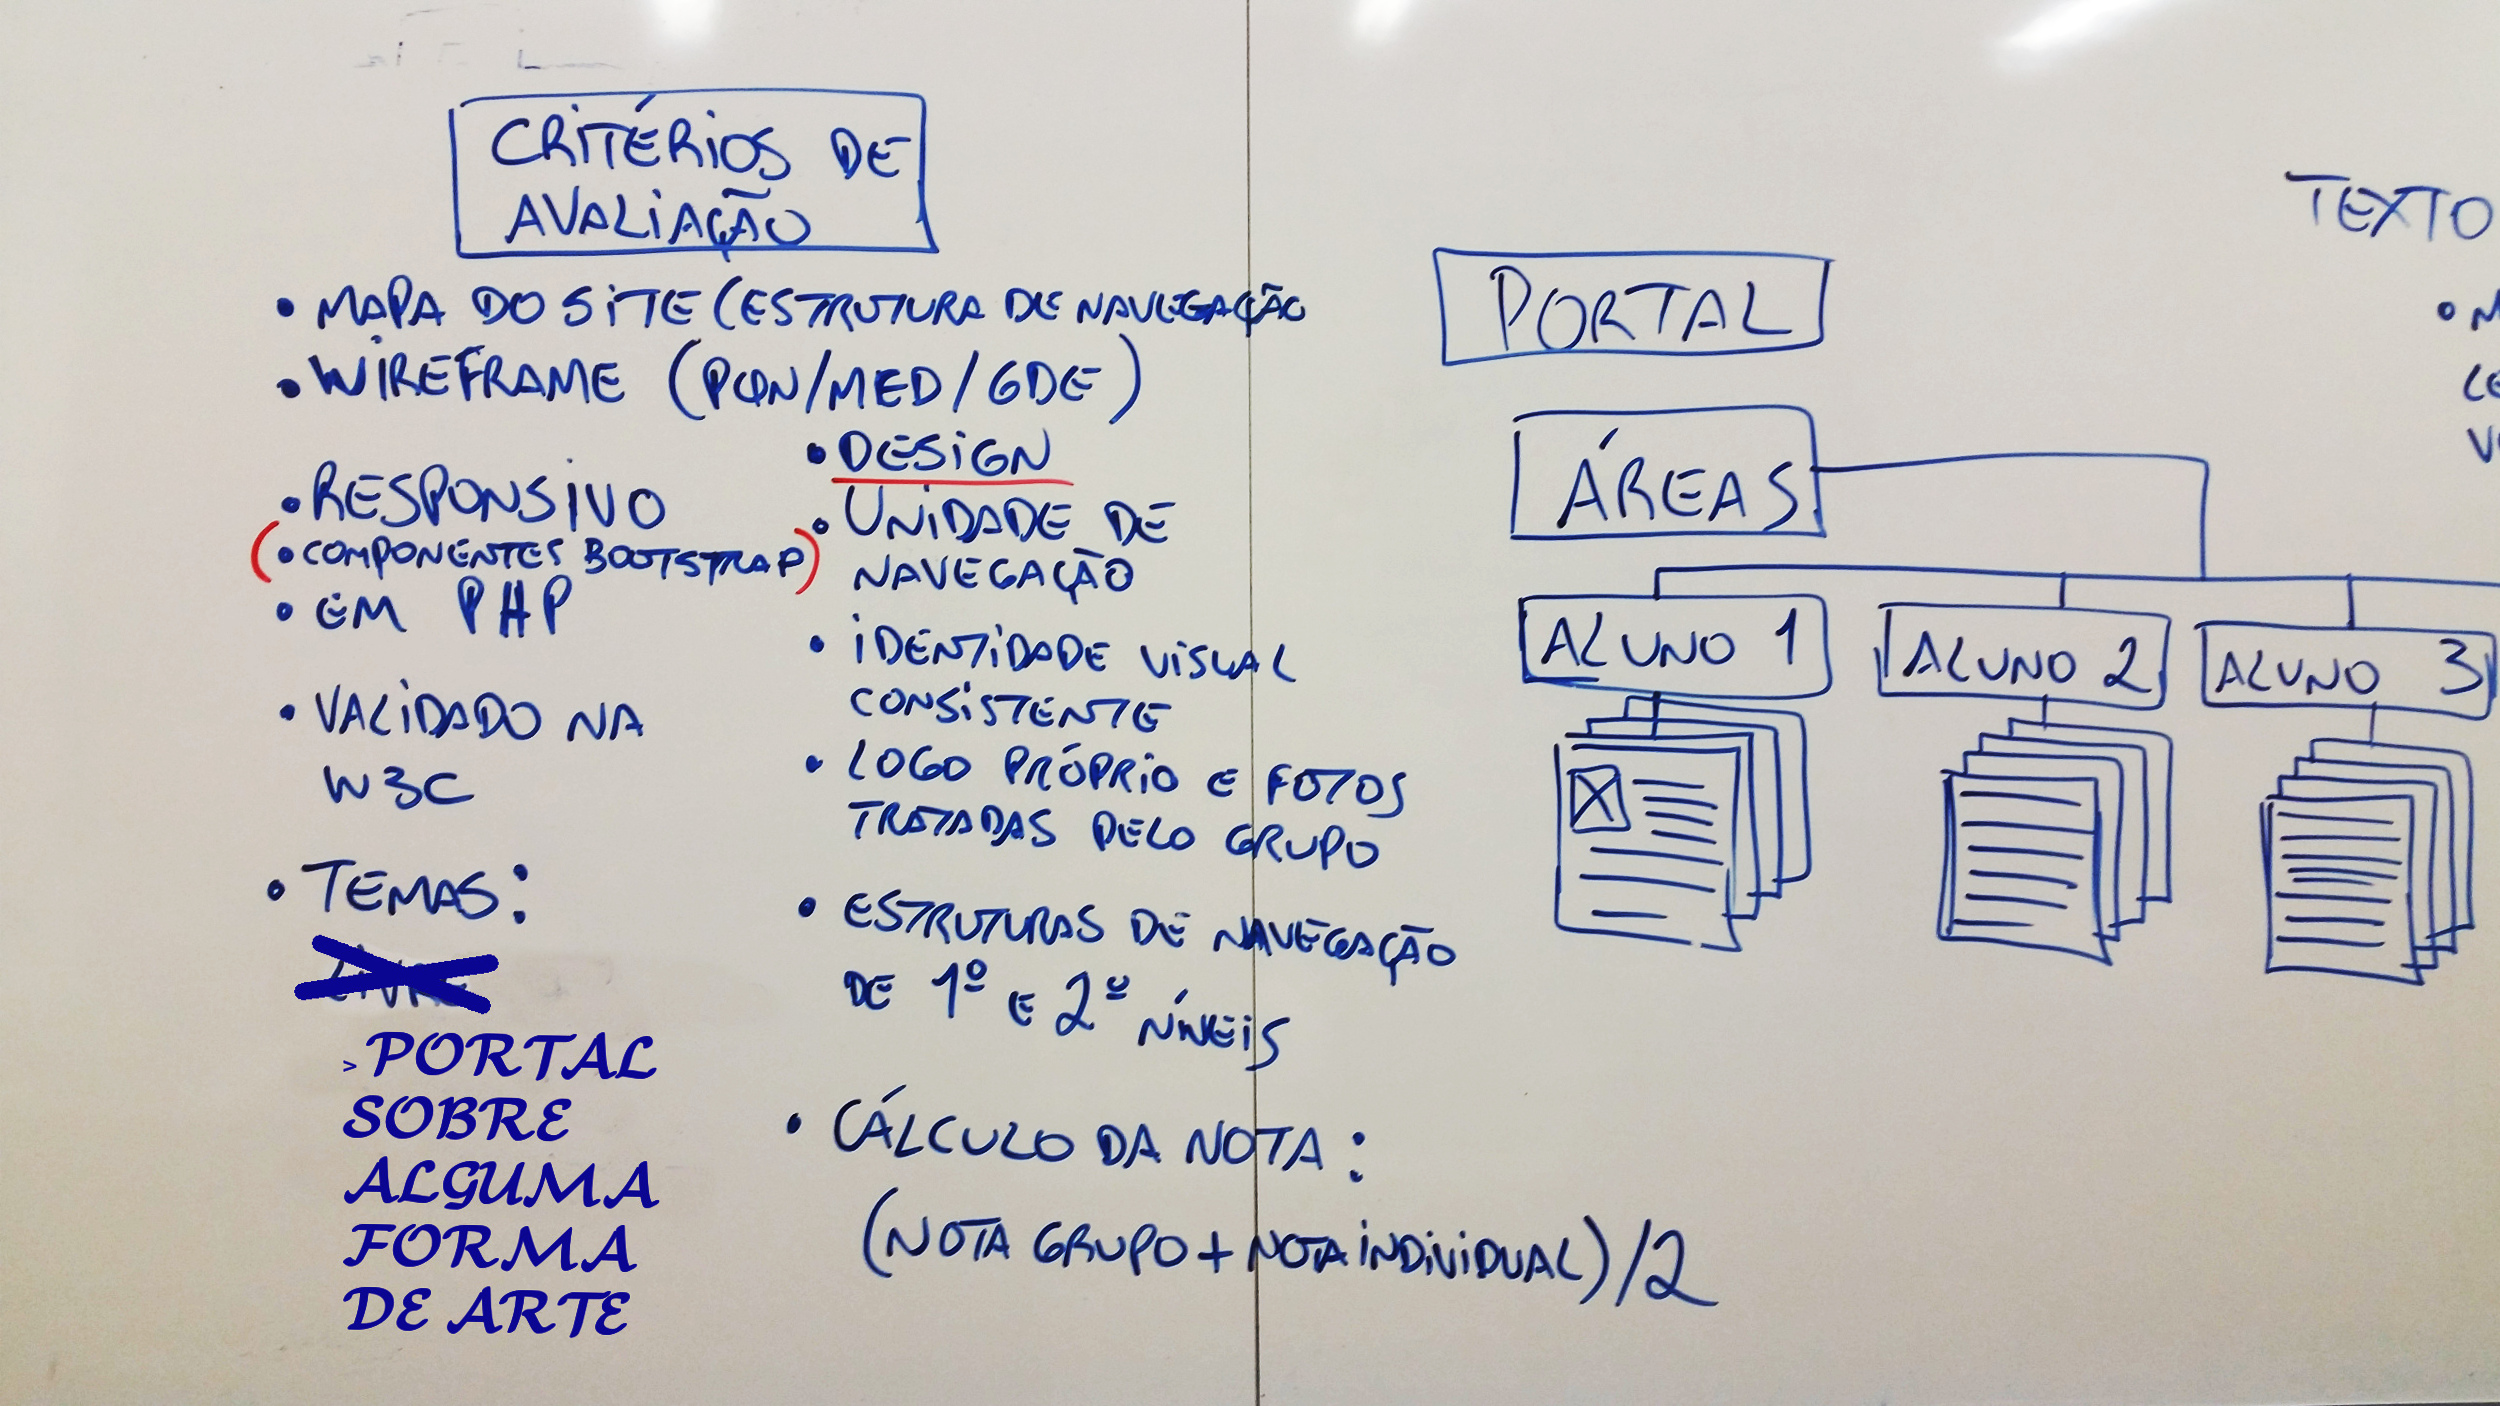 CRITÉRIOS DE
AVALIAÇÃO
• MAPA DO SITE (ESTRUTURA DE NAVEGAÇÃO
• WIREFRAME (PQN/MED/GDE)
• RESPONSIVO
(• COMPONENTES BOOTSTRAP)
• EM PHP
• VALIDADO NA
W3C
• TEMAS:
> PORTAL
SOBRE
ALGUMA
FORMA
DE ARTE
• DESIGN
• UNIDADE DE
NAVEGAÇÃO
• IDENTIDADE VISUAL
CONSISTENTE
• LOGO PRÓPRIO E FOTOS
TRATADAS PELO GRUPO
• ESTRUTURAS DE NAVEGAÇÃO
DE 1º E 2º NÍVEIS
• CÁLCULO DA NOTA:
(NOTA GRUPO + NOTA INDIVIDUAL)/2
PORTAL
ÁREAS
ALUNO 1
ALUNO 2
ALUNO 3
TEXTO